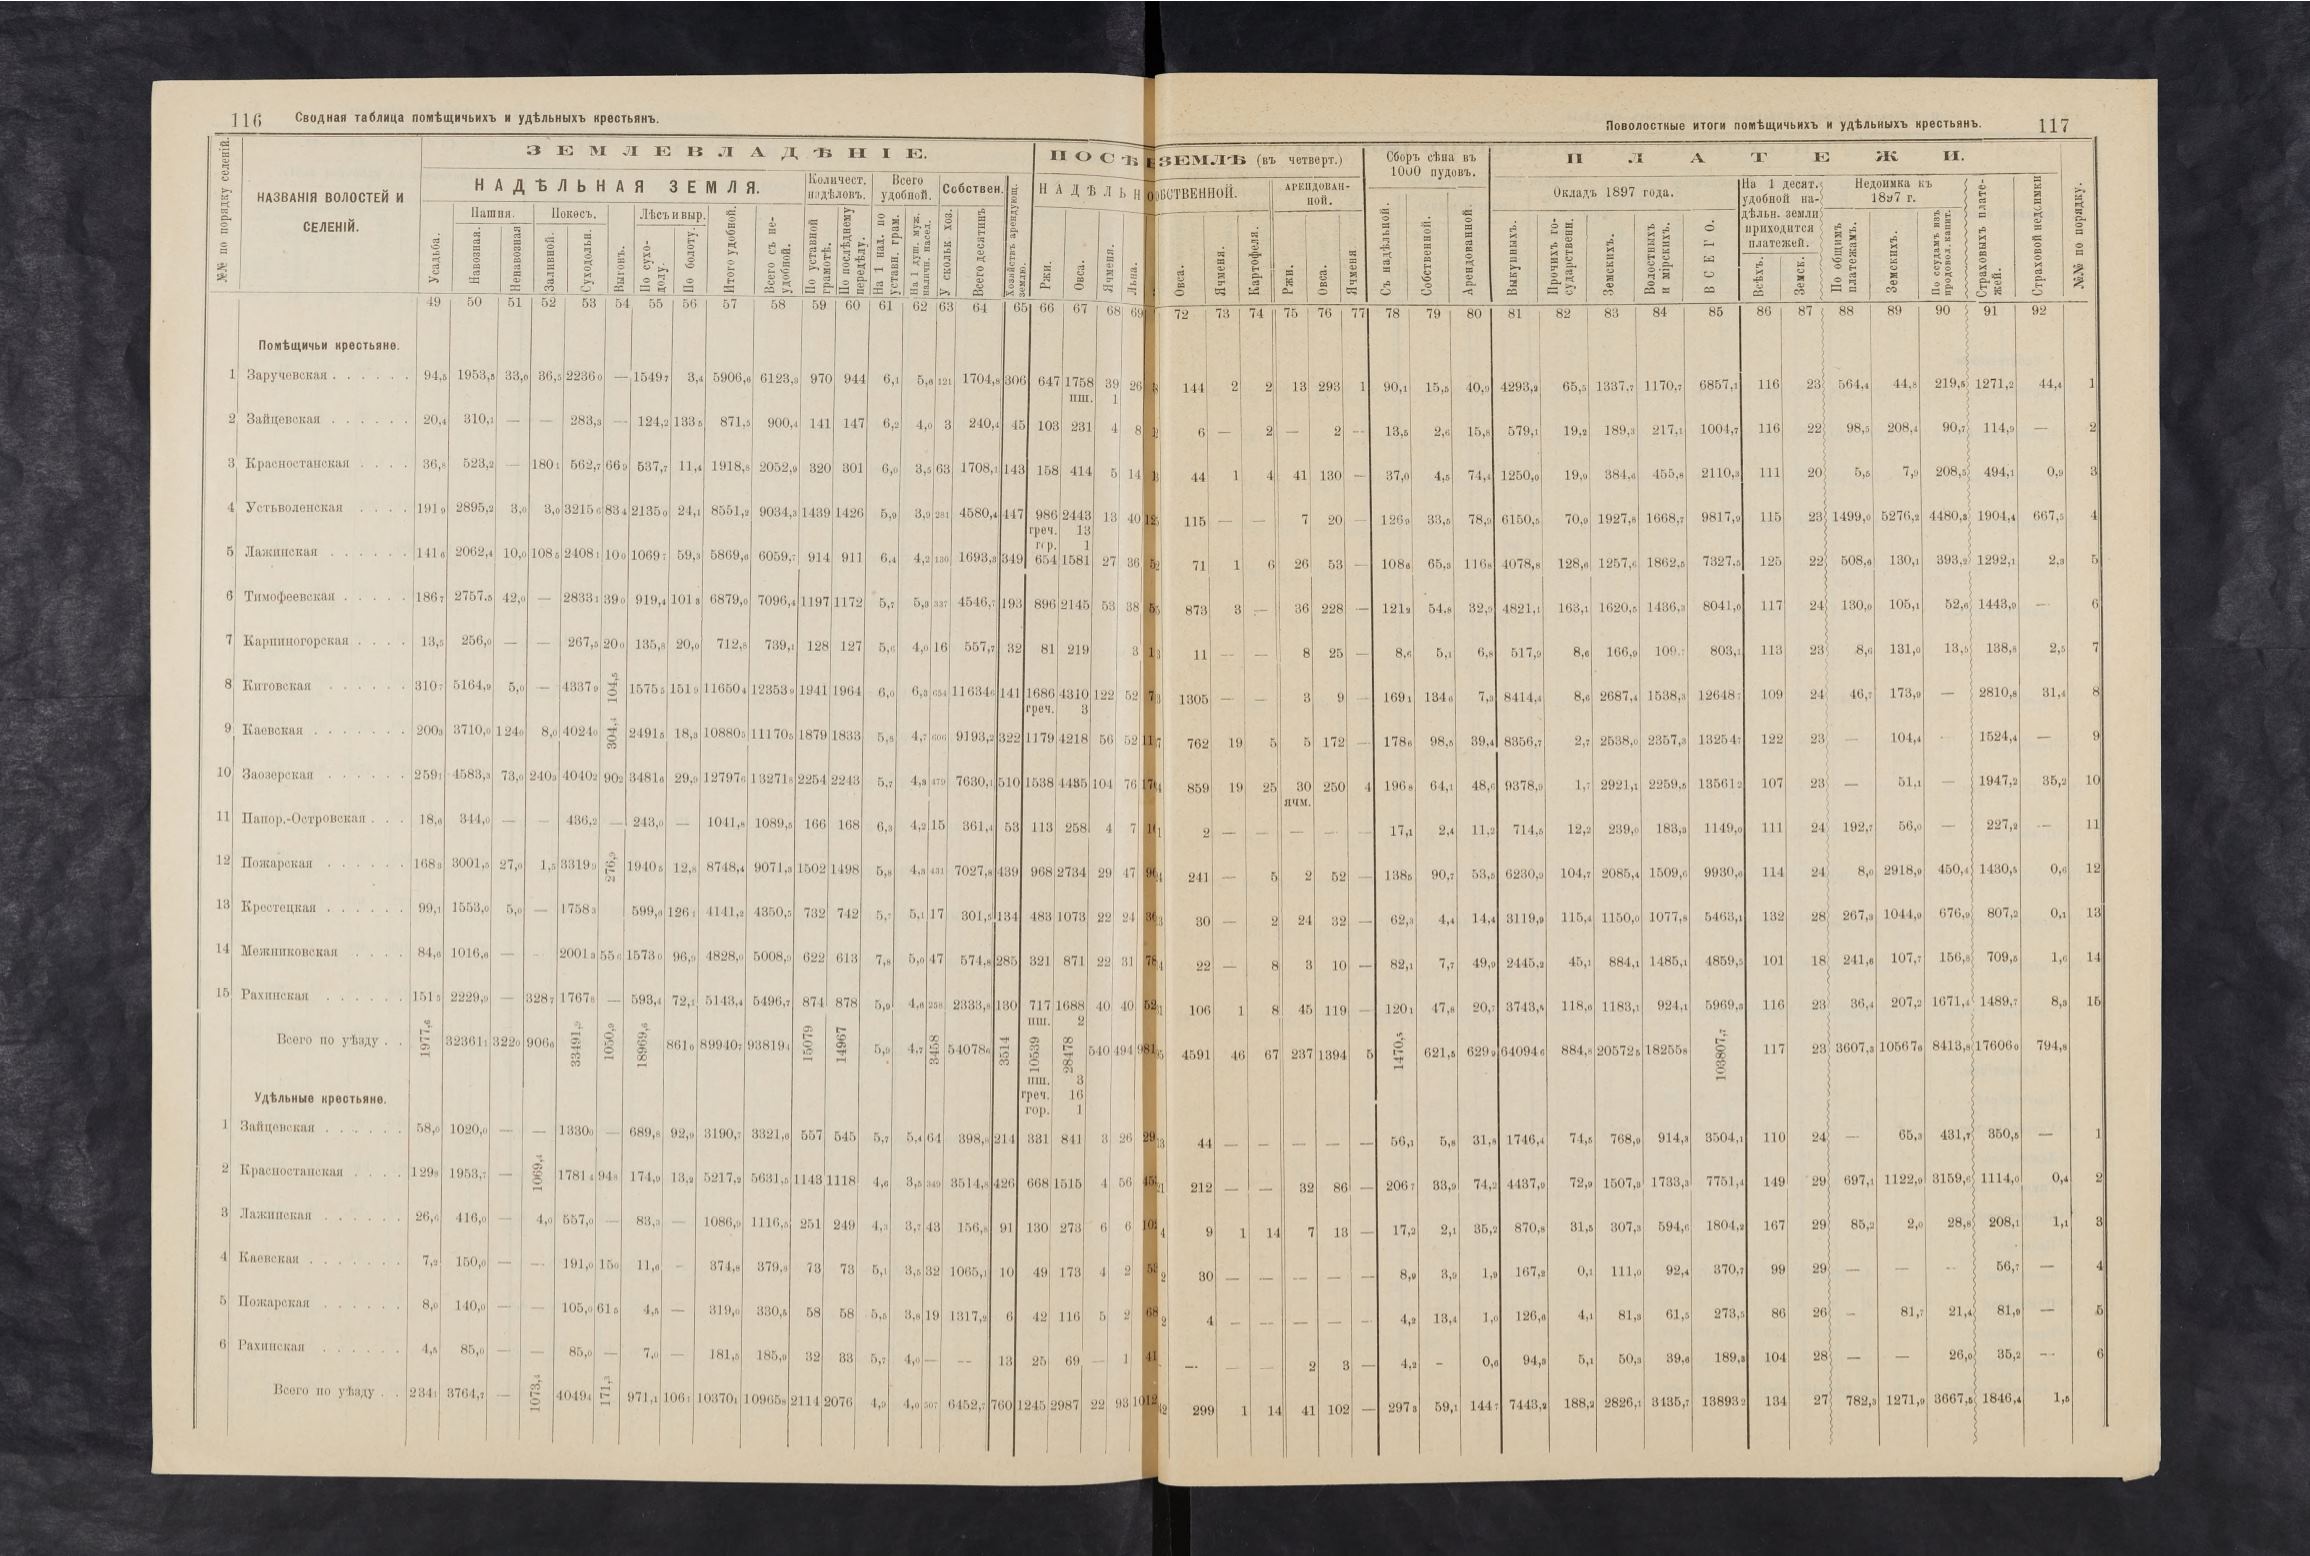 116 Сводная таблица помѣщичьихъ и удѣльныхъ крестьянъ.
Поволостные итоги помѣщичьихъ и удѣльныхъ крестьянъ. 117
№№ по порядку селеній.
НАЗВАНІЯ ВОЛОСТЕЙ И СЕЛЕНІЙ.
ЗЕМЛЕВЛАДѢНІЕ.
НАДѢЛЬНАЯ ЗЕМЛЯ.
Количест. надѣловъ.
Всего удобной.
Собствен.
Хозяйствъ арендующ. землю.
Усадьба.
Пашня.
Навозная.
Ненавозная
Покосъ.
Заливной.
Суходольн.
Выгонъ.
Лѣсъ и выр.
По сухо-долу.
По болоту.
Итого удобной.
Всего съ не-удобной.
По уставной грамотѣ.
По послѣднему передѣлу.
На 1 над. по уставн. грам.
На 1 душ. муж. наличн. насел.
У скольк. хоз.
Всего десятинъ
ПОСѢ
НАДѢЛЬН
Ржи.
Овса.
Ячменя.
Льна.
ЗЕМЛѢ (въ четверт.)
БСТВЕННОЙ.
АРЕНДОВАН-НОЙ.
Овса.
Ячменя.
Картофеля.
Ржи.
Овса.
Ячменя
Сборъ сѣна въ 1000 пудовъ.
Съ надѣльной.
Собственной.
Арендованной.
ПЛАТЕЖИ.
Окладъ 1897 года.
Выкупныхъ.
Прочихъ го-сударственн.
Земскихъ.
Волостныхъ и мірскихъ.
ВСЕГО.
На 1 десят. удобной на-дѣльн. земли приходится платежей.
Всѣхъ.
Земск.
Недоимка къ 1897 г.
По общимъ платежамъ.
Земскихъ.
По ссудамъ изъ продовол. капит.
Страховыхъ плате-жей.
Страховой недоимки
№№ по порядку.
49 50 51 52 53 54 55 56 57 58 59 60 61 62 63 64 65 66 67 68 69 72 73 74 75 76 77 78 79 80 81 82 83 84 85 86 87 88 89 90 91 92
Помѣщичьи крестьяне.
1 Заручевская 94,5 1953,5 33,0 36,5 2236 0 — 1549 7 3,4 5906,6 6123,3 970 944 6,1 5,6 121 1704,8 306 647 1758 39 26 144 2 2 13 293 1 90,1 15,5 40,9 4293,2 65,5 1337,7 1170,7 6857,1 116 23 564,4 44,8 219,5 1271,2 44,4 1
пш. 1
2 Зайцевская 20,4 310,1 — — 283,3 — 124,2 133 5 871,5 900,4 141 147 6,2 4,0 3 240,4 45 103 231 4 8 6 — 2 — 2 — 13,5 2,6 15,8 579,1 19,2 189,3 217,1 1004,7 116 22 98,5 208,4 90,7 114,9 — 2
3 Красностанская 36,8 523,2 — 180 1 562,7 66 9 537,7 11,4 1918,8 2052,9 320 301 6,0 3,5 63 1708,1 143 158 414 5 14 44 1 4 41 130 — 37,0 4,5 74,4 1250,0 19,9 384,6 455,8 2110,3 111 20 5,5 7,9 208,5 494,1 0,9 3
4 Устьволенская 191 9 2895,2 3,0 3,0 3215 6 83 4 2135 0 24,1 8551,2 9034,3 1439 1426 5,9 3,9 281 4580,4 447 986 2443 13 40 115 — — 7 20 — 126 9 33,5 78,9 6150,5 70,9 1927,8 1668,7 9817,9 115 23 1499,0 5276,2 4480,3 1904,4 667,5 4
греч. 13
гор. 1
5 Лажинская 141 6 2062,4 10,0 108 5 2408 1 10 0 1069 7 59,3 5869,6 6059,7 914 911 6,4 4,2 130 1693,3 349 654 1581 27 36 71 1 6 26 53 — 108 6 65,3 116 8 4078,8 128,6 1257,6 1862,5 7327,5 125 22 508,6 130,1 393,2 1292,1 2,3 5
6 Тимофеевская 186 7 2757,5 42,0 — 2833 1 39 0 919,4 101 3 6879,0 7096,4 1197 1172 5,7 5,3 337 4546,7 193 896 2145 53 38 873 3 — 36 228 — 121 2 54,8 32,9 4821,1 163,1 1620,5 1436,3 8041,0 117 24 130,0 105,1 52,6 1443,9 — 6
7 Карпиногорская 13,5 256,0 — — 267,5 20 0 135,8 20,0 712,8 739,1 128 127 5,6 4,0 16 557,7 32 81 219 3 11 — — 8 25 — 8,6 5,1 6,8 517,9 8,6 166,9 109,7 803,1 113 23 8,6 131,0 13,5 138,8 2,5 7
8 Китовская 310 7 5164,9 5,0 — 4337 9 104,5 1575 5 151 9 11650 4 12353 9 1941 1964 6,0 6,3 654 11634 6 141 1686 4310 122 52 1305 — — 3 9 — 169 1 134 6 7,3 8414,4 8,6 2687,4 1538,3 12648 7 109 24 46,7 173,9 — 2810,8 31,4 8
греч. 3
9 Каевская 200 3 3710,0 124 0 8,0 4024 0 304,4 2491 5 18,3 10880 5 11170 5 1879 1833 5,8 4,7 606 9193,2 322 1179 4218 56 52 762 19 5 5 172 — 178 6 98,5 39,4 8356,7 2,7 2538,0 2357,3 13254 7 122 23 — 104,4 1524,4 — 9
10 Заозерская 259 1 4583,3 73,0 240 3 4040 2 90 2 3481 6 29,9 12797 6 13271 8 2254 2243 5,7 4,3 479 7630,1 510 1538 4435 104 76 859 19 25 30 250 4 196 8 64,1 48,6 9378,9 1,7 2921,1 2259,5 13561 2 107 23 — 51,1 — 1947,2 35,2 10
ячм.
11 Папор.-Островская 18,6 344,0 — — 436,2 — 243,0 — 1041,8 1089,5 166 168 6,3 4,2 15 361,4 53 113 258 4 7 2 — — — — — 17,1 2,4 11,2 714,5 12,2 239,0 183,3 1149,0 111 24 192,7 56,0 — 227,2 — 11
12 Пожарская 168 3 3001,5 27,0 1,5 3319 9 276,9 1940 5 12,8 8748,4 9071,3 1502 1498 5,8 4,3 431 7027,8 439 968 2734 29 47 241 — 5 2 52 — 138 5 90,7 53,5 6230,9 104,7 2085,4 1509,6 9930,6 114 24 8,0 2918,9 450,4 1430,5 0,6 12
13 Крестецкая 99,1 1553,0 5,0 — 1758 3 599,6 126 1 4141,2 4350,5 732 742 5,7 5,1 17 301,5 134 483 1073 22 24 30 — 2 24 32 — 62,3 4,4 14,4 3119,9 115,4 1150,0 1077,8 5463,1 132 28 267,3 1044,9 676,9 807,2 0,1 13
14 Межниковская 84,6 1016,6 — 2001 3 55 6 1573 0 96,9 4828,0 5008,9 622 613 7,8 5,0 47 574,8 285 321 871 22 31 22 — 8 3 10 — 82,1 7,7 49,9 2445,2 45,1 884,1 1485,1 4859,5 101 18 241,6 107,7 156,8 709,5 1,6 14
15 Рахинская 151 5 2229,9 — 328 7 1767 8 — 593,4 72,1 5143,4 5496,7 874 878 5,9 4,6 258 2333,8 130 717 1688 40 40 106 1 8 45 119 — 120 1 47,8 20,7 3743,5 118,6 1183,1 924,1 5969,3 116 23 36,4 207,2 1671,4 1489,7 8,3 15
пш. 2
Всего по уѣзду 1977,6 32361 1 322 0 906 6 33491,9 1050,9 18969,6 861 6 89940 7 93819 4 15079 14967 5,9 4,7 3458 54078 6 3514 10539 28478 540 494 4591 46 67 237 1394 5 1470,5 621,5 629 9 64094 6 884,8 20572 5 18255 8 103807,7 117 23 3607,3 10567 6 8413,8 17606 0 794,8
пш. 3
греч. 16
гор. 1
Удѣльные крестьяне.
1 Зайцевская 58,0 1020,0 — — 1330 0 — 689,8 92,9 3190,7 3321,6 557 545 5,7 5,4 64 398,8 214 331 841 3 26 44 — — — — — 56,1 5,8 31,8 1746,4 74,5 768,9 914,3 3504,1 110 24 — 65,3 431,7 350,5 — 1
2 Красностанская 129 8 1953,7 — 1069,4 1781 4 94 8 174,9 13,2 5217,2 5631,5 1143 1118 4,6 3,5 349 3514,8 426 668 1515 4 56 212 — — 32 86 — 206 7 33,9 74,2 4437,9 72,9 1507,3 1733,3 7751,4 149 29 697,1 1122,9 3159,6 1114,0 0,4 2
3 Лажинская 26,6 416,0 — 4,0 557,0 — 83,3 — 1086,9 1116,5 251 249 4,3 3,7 43 156,8 91 130 273 6 6 9 1 14 7 13 — 17,2 2,1 35,2 870,8 31,5 307,3 594,6 1804,2 167 29 85,2 2,0 28,8 208,1 1,1 3
4 Каевская 7,2 150,0 — — 191,0 15 0 11,6 — 374,8 379,8 73 73 5,1 3,5 32 1065,1 10 49 173 4 2 30 — — — — — 8,9 3,9 1,9 167,2 0,1 111,0 92,4 370,7 99 29 — — — 56,7 — 4
5 Пожарская 8,0 140,0 — — 105,0 61 5 4,5 — 319,0 330,5 58 58 5,5 3,8 19 1317,2 6 42 116 5 2 4 — — — — — 4,2 13,4 1,0 126,6 4,1 81,3 61,5 273,5 86 26 — 81,7 21,4 81,9 — 5
6 Рахинская 4,5 85,0 — — 85,0 — 7,0 — 181,5 185,9 32 33 5,7 4,0 — — 13 25 69 — 1 — — — 2 3 — 4,2 — 0,6 94,3 5,1 50,3 39,6 189,3 104 28 — — 26,0 35,2 — 6
Всего по уѣзду 234 1 3764,7 — 1073,4 4049 4 171,3 971,1 106 1 10370 1 10965 8 2114 2076 4,9 4,0 507 6452,7 760 1245 2987 22 93 299 1 14 41 102 — 297 3 59,1 144 7 7443,2 188,2 2826,1 3435,7 13893 2 134 27 782,3 1271,9 3667,5 1846,4 1,5